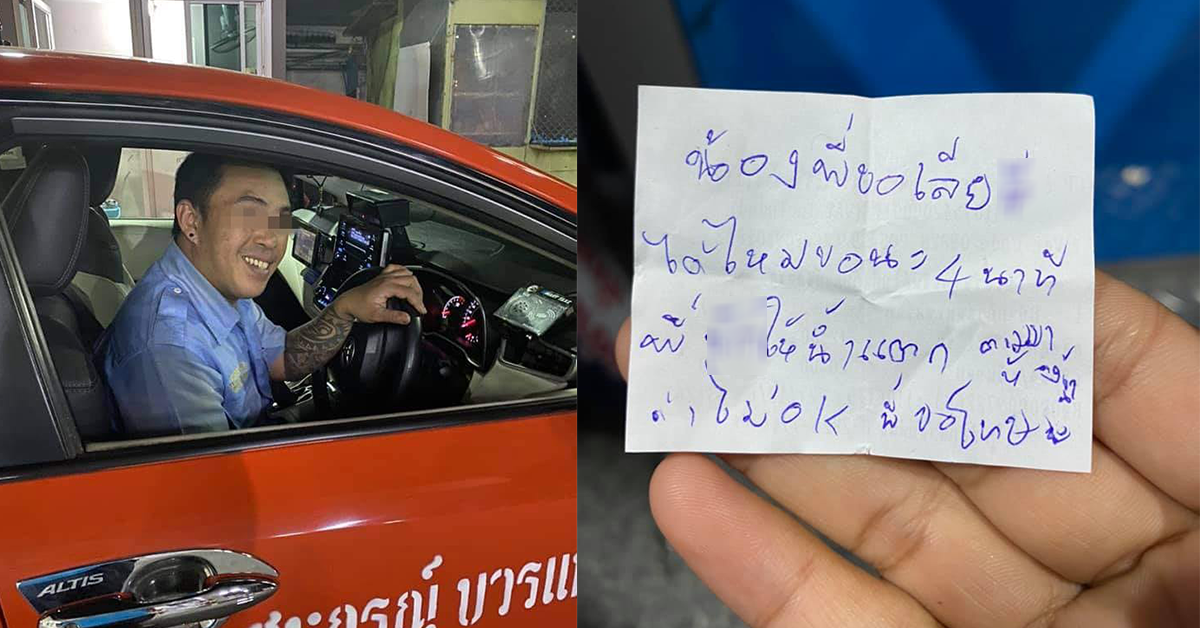 ALTIS
สหกรณ์ บวรแท
น้องพี่ขอเลีย
ได้ไหมขอนะ 4 นาที
พี่ ให้น้ำแตก ตามมา
ถ้าไม่ OK พี่ขอโทษ